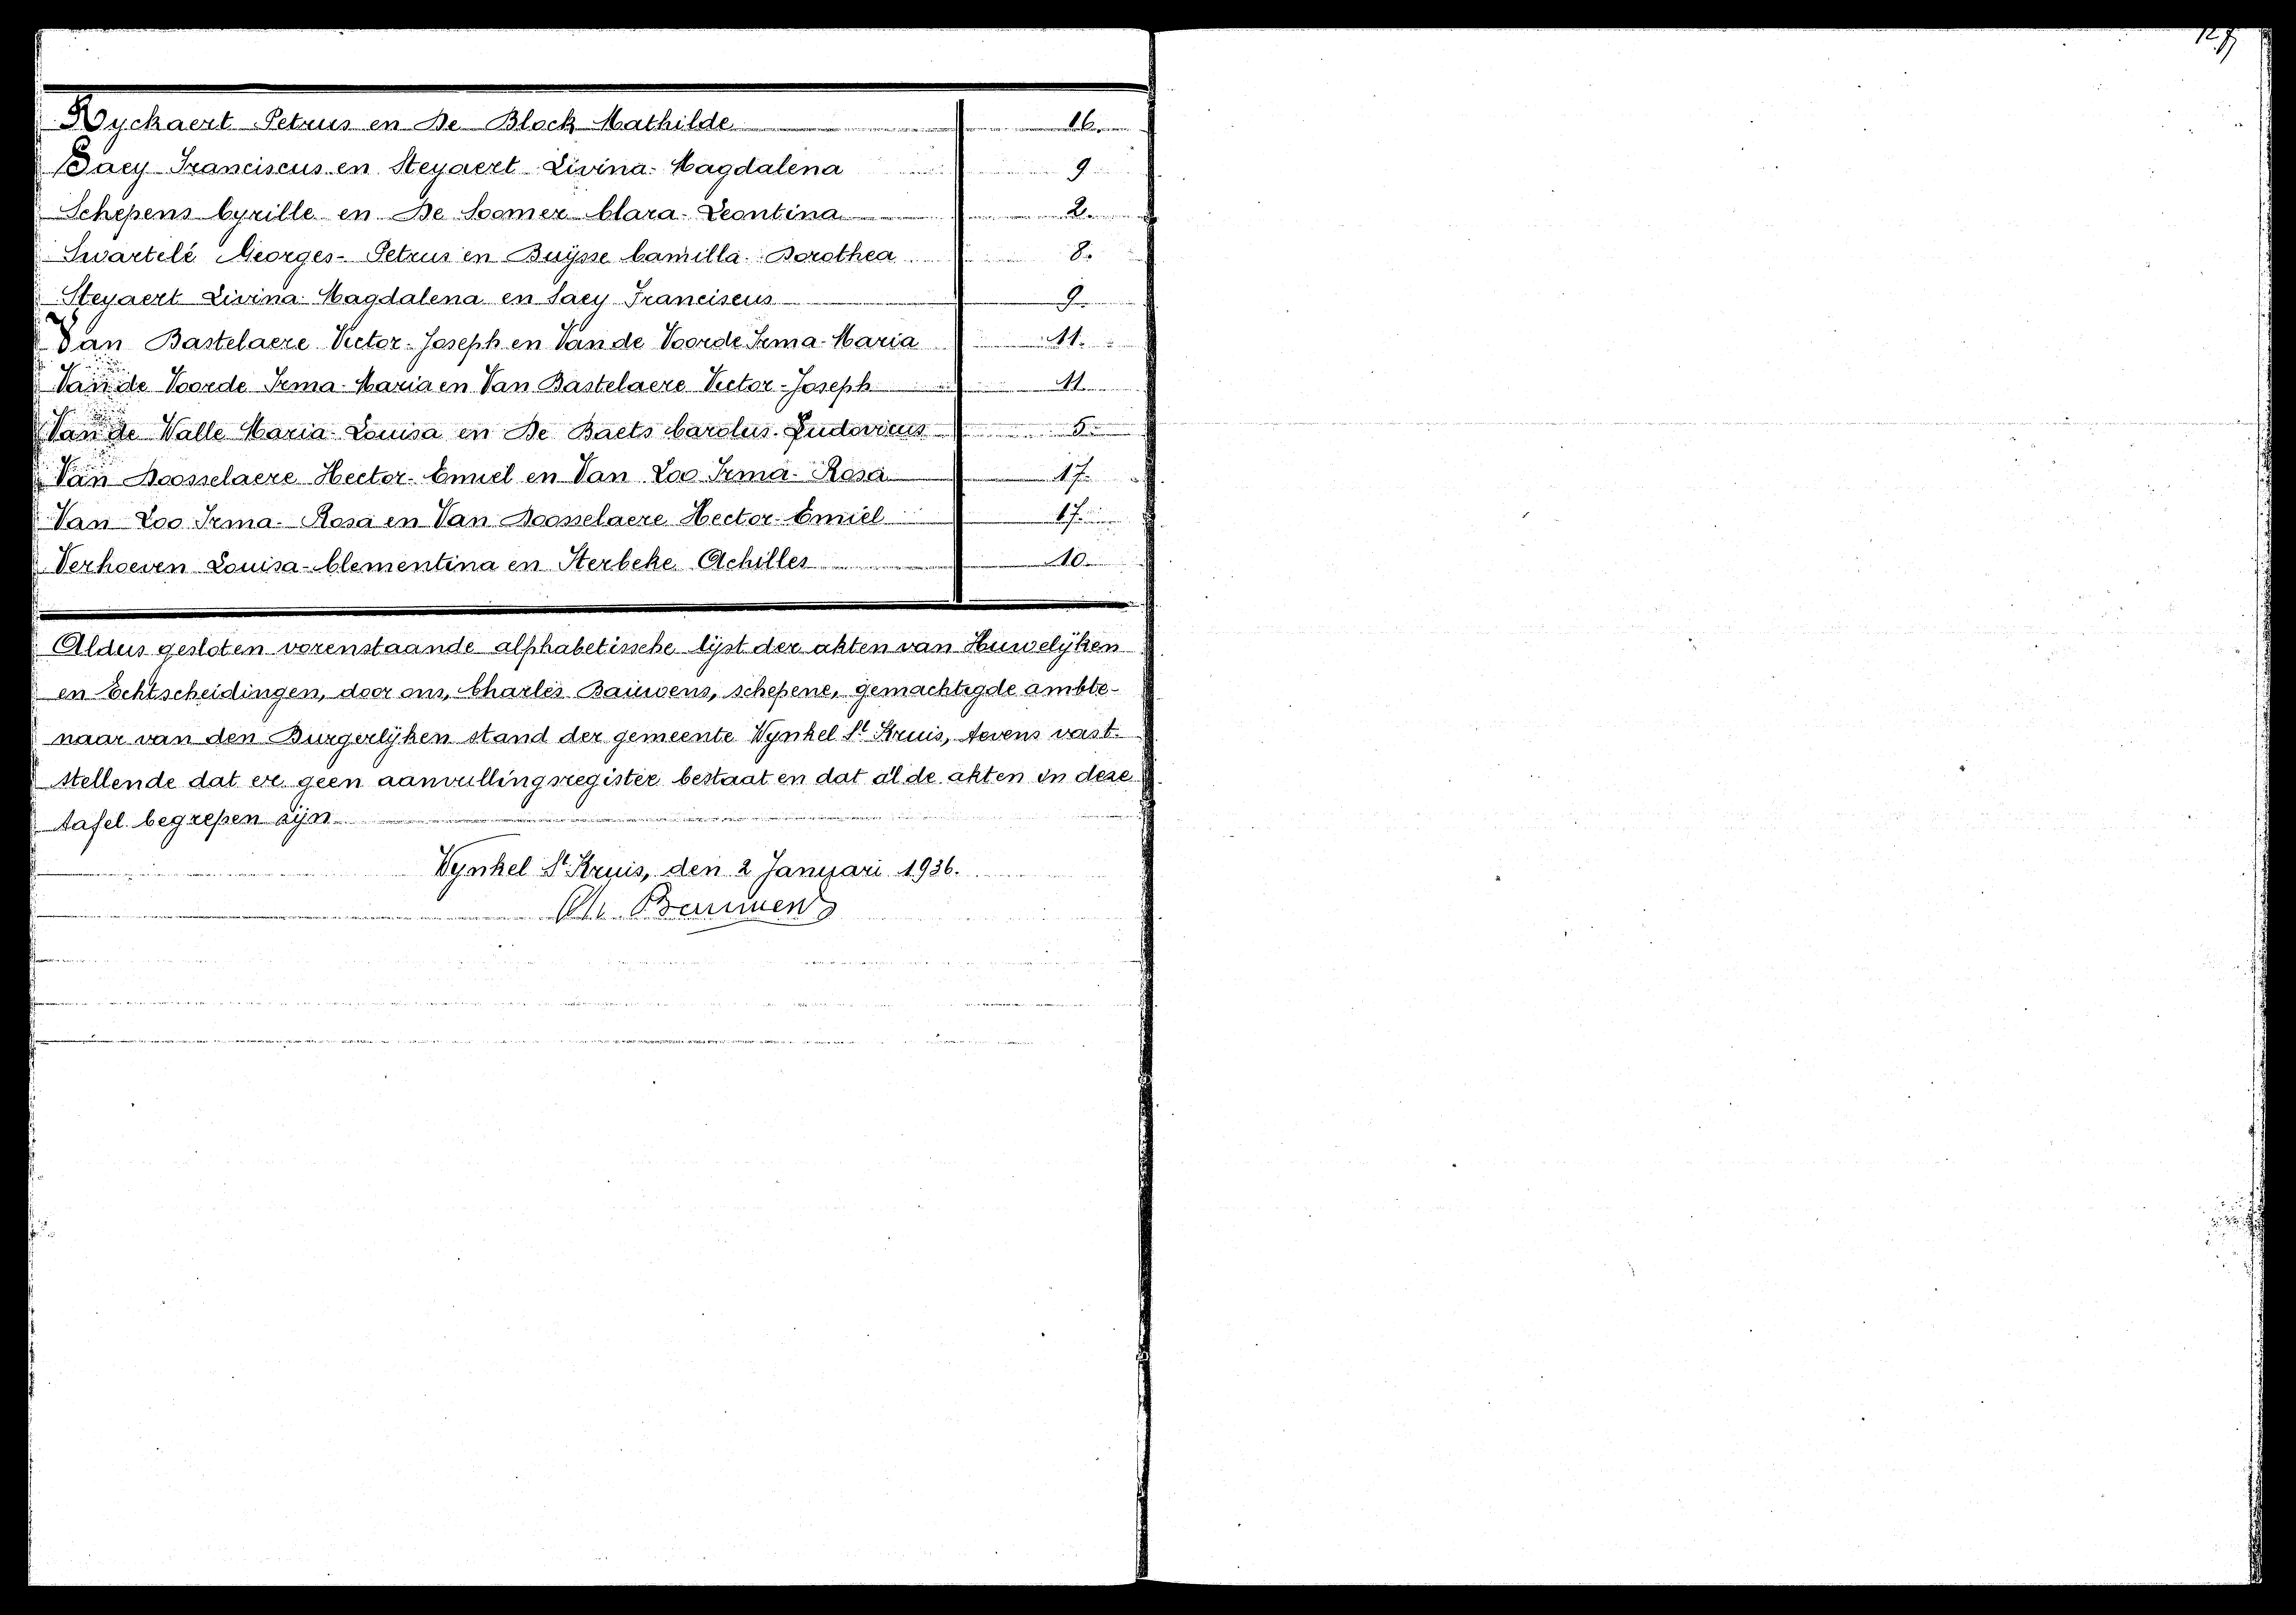 Ryckaert Petrus en De Block Mathilde 16.
Saey Franciscus en Steyaert Livina-Magdalena 9
Schepens Cyrille en De Soomer Clara-Leontina 2.
Swartelé Georges-Petrus en Buÿsse Camilla-Dorothea 8.
Steyaert Livina-Magdalena en Saey Franciscus 9.
Van Bastelaere Victor-Joseph en Van de Voorde Irma-Maria 11.
Van de Voorde Irma-Maria en Van Bastelaere Victor-Joseph 11.
Van de Walle Maria-Louisa en De Baets Carolus-Ludovicus 5.
Van Hoosselaere Hector-Emiel en Van Loo Irma-Rosa 17.
Van Loo Irma-Rosa en Van Hoosselaere Hector-Emiel 17.
Verhoeven Louisa-Clementina en Sterbeke Achilles 10.
Aldus gesloten vorenstaande alphabetische lÿst der akten van Huwelÿken
en Echtscheidingen, door ons, Charles Bauwens, schepene, gemachtigde ambte-
naar van den Burgerlÿken stand der gemeente Wynkel St Kruis, tevens vast-
stellende dat er geen aanvullingsregister bestaat en dat al de akten in deze
tafel begrepen zÿn.
Wynkel St Kruis, den 2 Januari 1936.
Ch. Bauwens